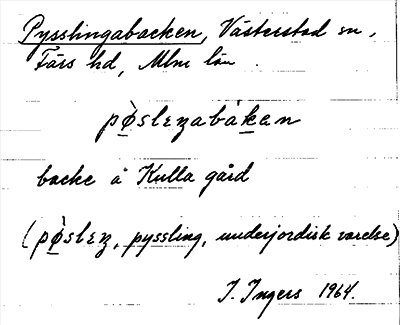 Pysslingabacken, Västerstad sn,
Färs hd, Mlm län.
pø̀slɛŋabákan
backe å Kulla gård
(pø̀slɛŋ, pyssling, underjordisk varelse)
I. Ingers 1964.